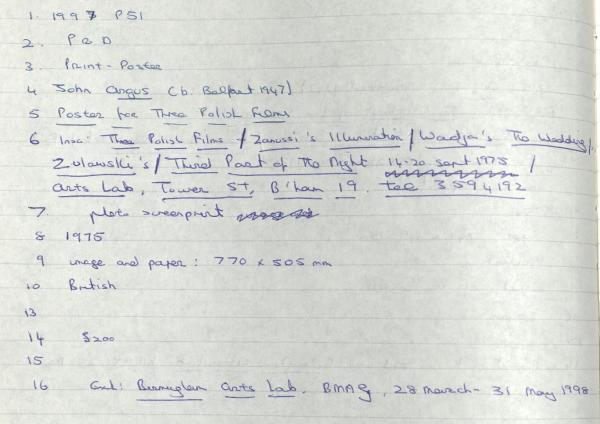 1. 1997 P51
2. P & D
3. Print - Poster
4 John Angus (b. Belfast 1947)
5 Poster for Three Polish Films
6 Insc: Three Polish Films / Zanussi's Illumination / Wadja's The Wedding /
Zulawski's / Third Part of The Night 14-20 Sept 1975 /
Arts Lab, Tower St, B'ham 19. tel 3594192
7. photo screenprint
8 1975
9 image and paper: 770 x 505 mm
10 British
13
14 £200
15
16 Exh: Birmingham Arts Lab, BMAG, 28 March - 31 May 1998